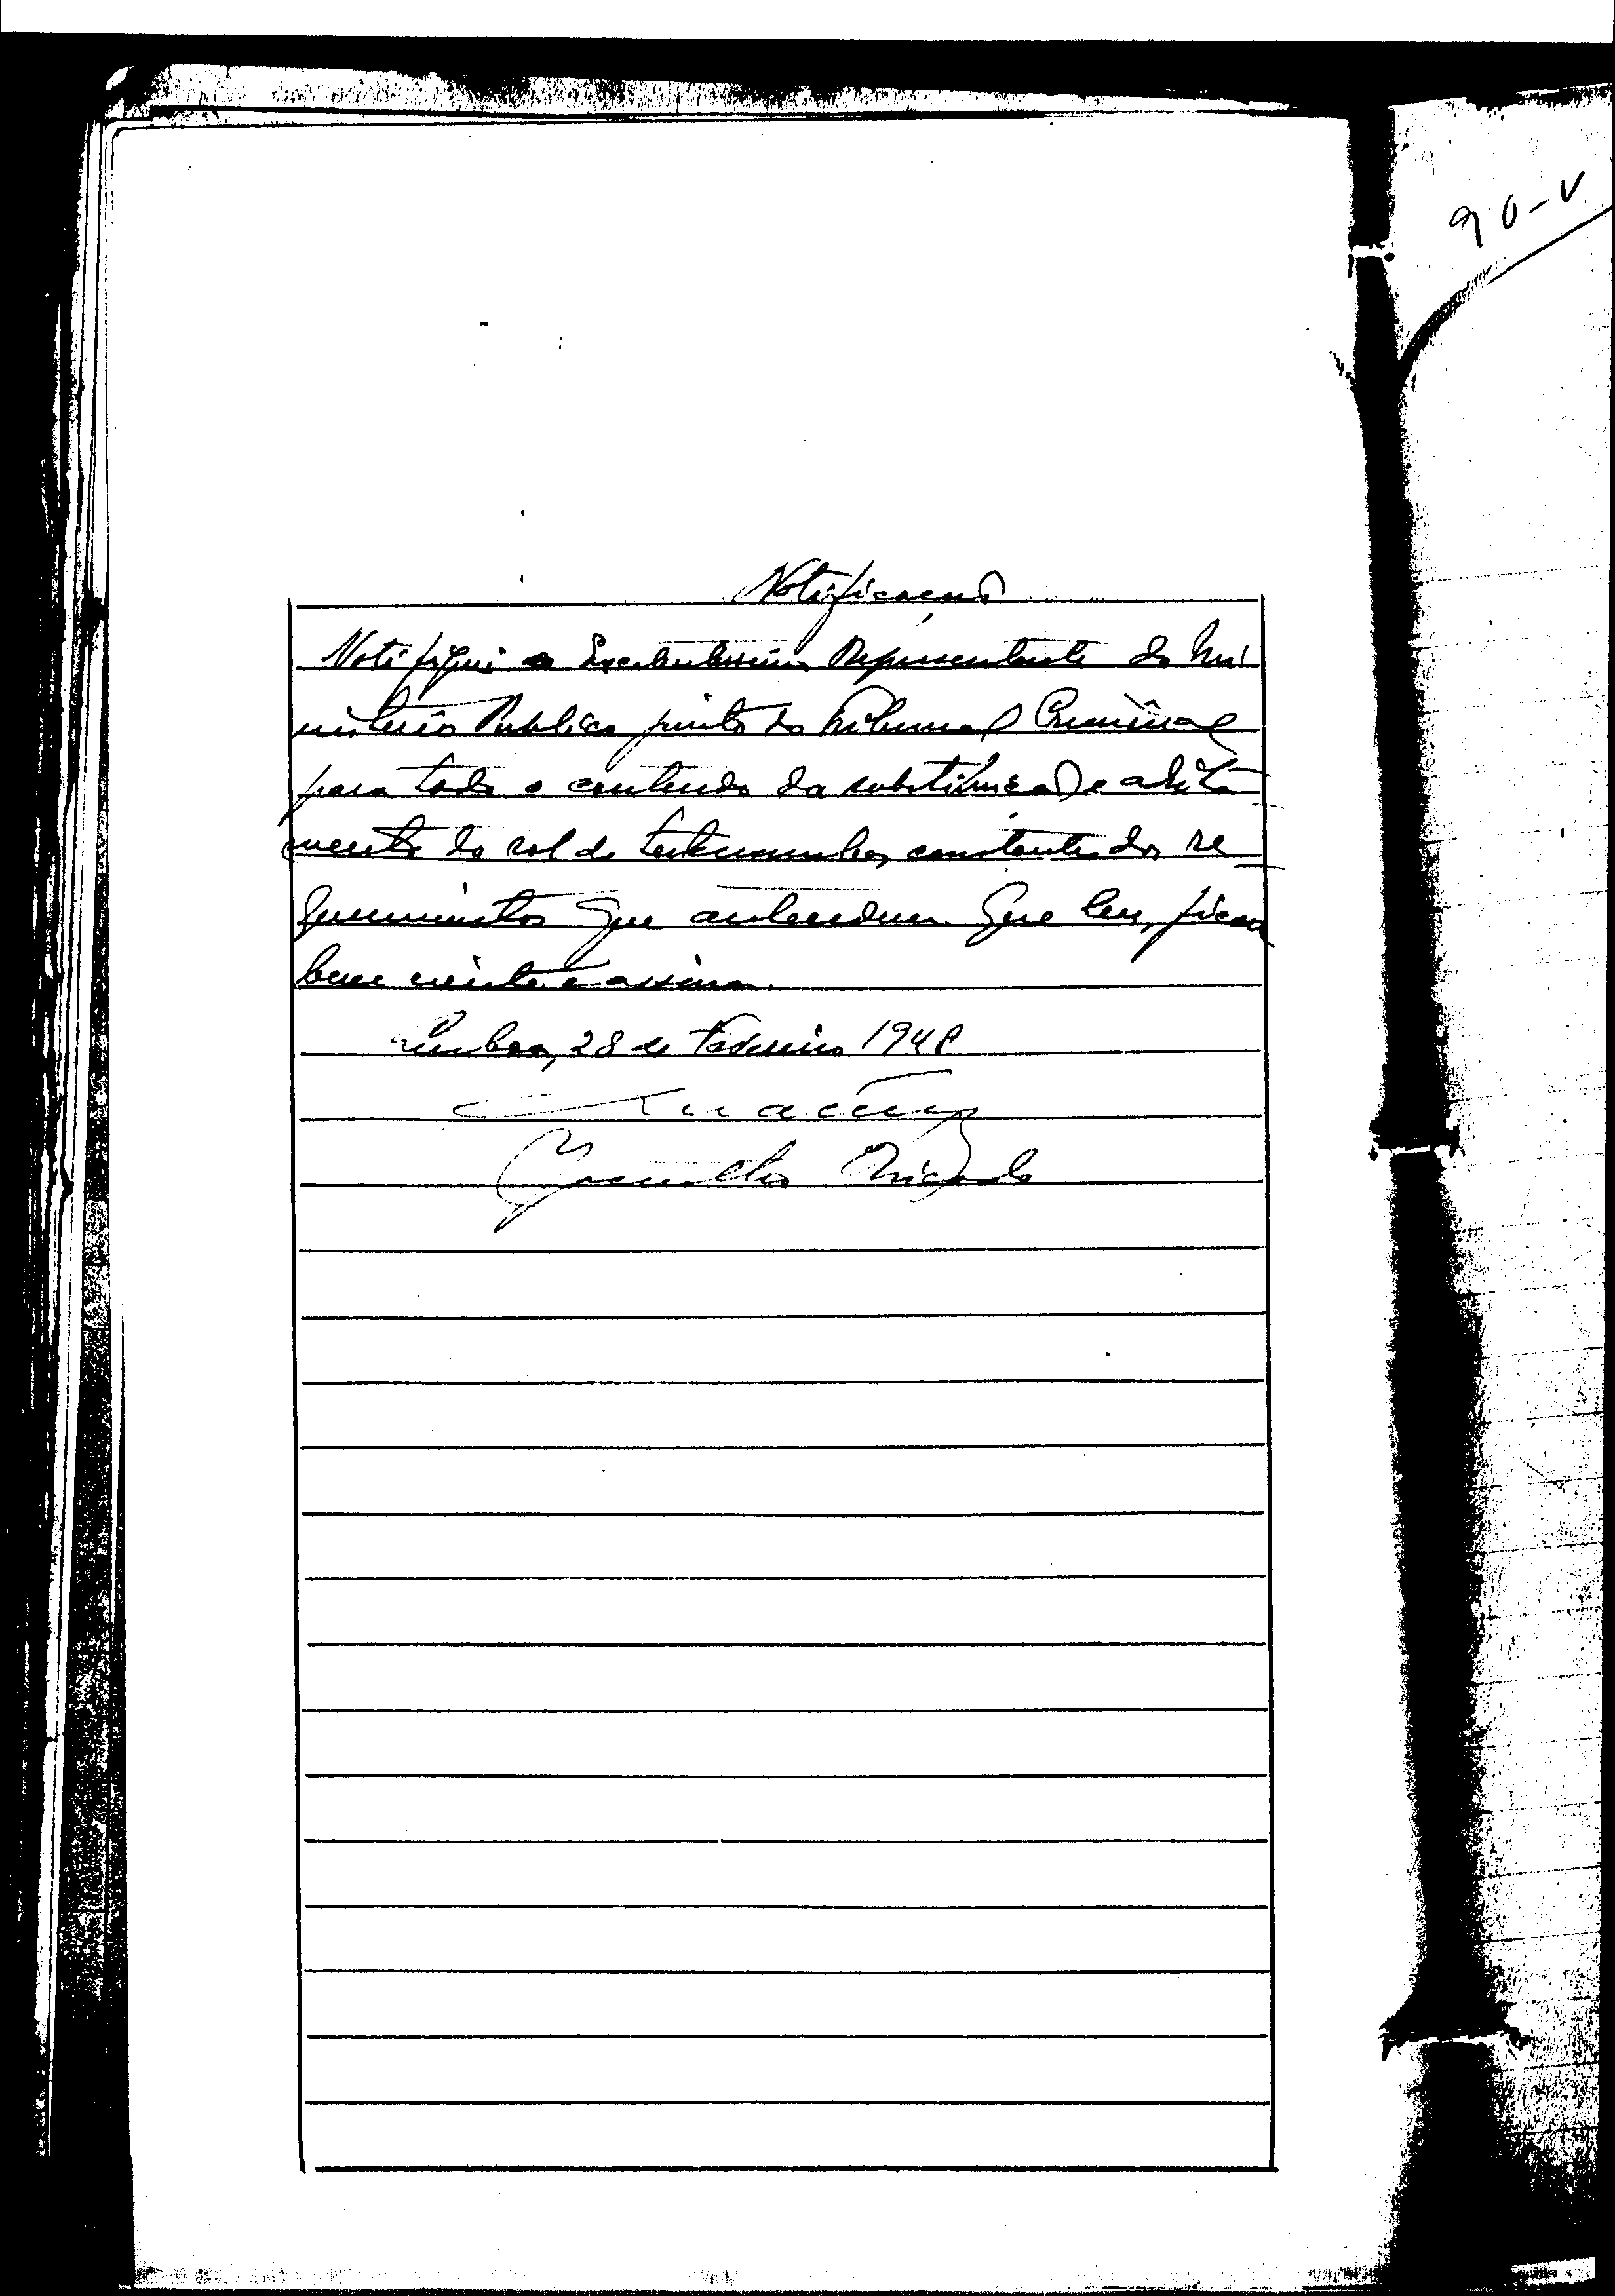 90-V
Notificação
Notifiquei o Excelentissimo Representante do Mi
nisterio Publico junto do Tribunal Criminal
para todo o conteudo da substituição e adita
mento do rol de testemunhas, constante dos re
querimentos que antecedem. Que leu, ficou
bem ciente e assina.
28 de Fevereiro 1948